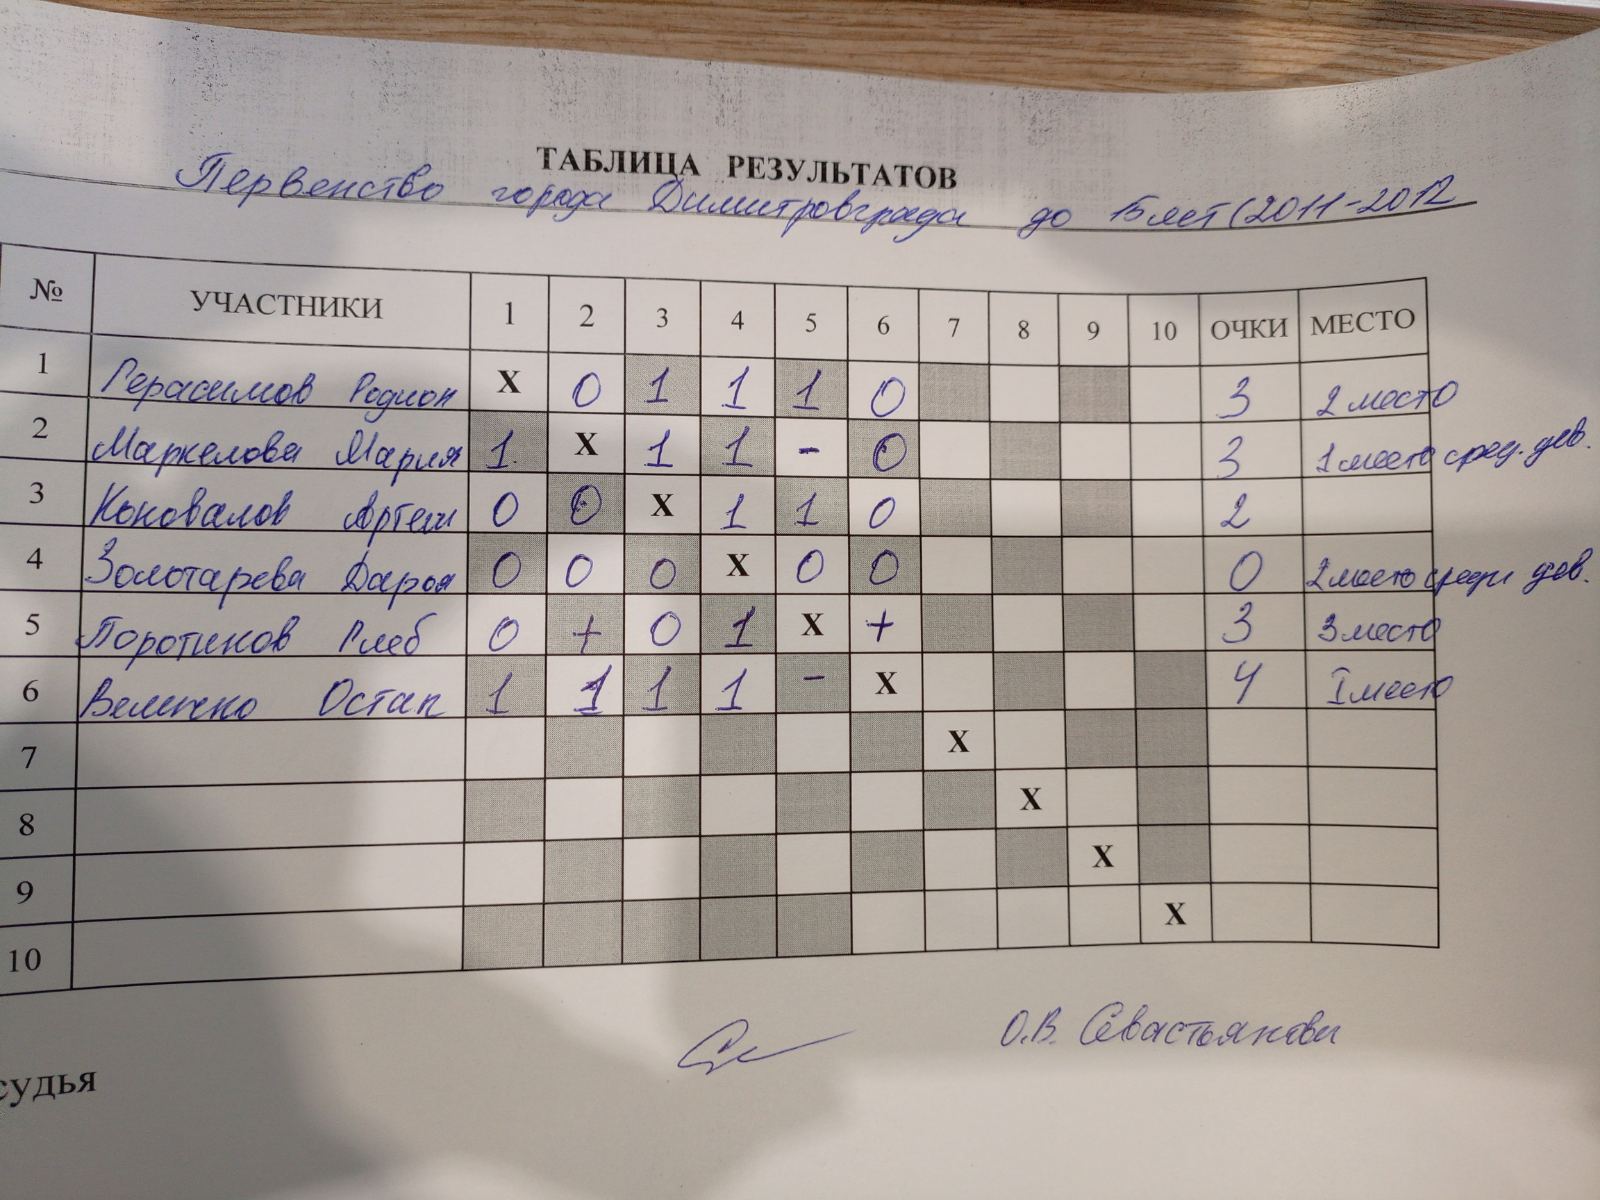 ТАБЛИЦА РЕЗУЛЬТАТОВ
Первенство города Димитровграда до 15 лет (2011-2012
№ УЧАСТНИКИ 1 2 3 4 5 6 7 8 9 10 ОЧКИ МЕСТО
1 Герасимов Родион X 0 1 1 1 0 3 2 место
2 Маркелова Мария 1 X 1 1 - 0 3 1 место сред. дев.
3 Коновалов Артем 0 0 X 1 1 0 2
4 Золотарева Дарья 0 0 0 X 0 0 0 2 место среди дев.
5 Поротиков Глеб 0 + 0 1 X + 3 3 место
6 Величко Остап 1 1 1 1 - X 4 I место
7 X
8 X
9 X
10 X
О.В. Севастьянова
судья